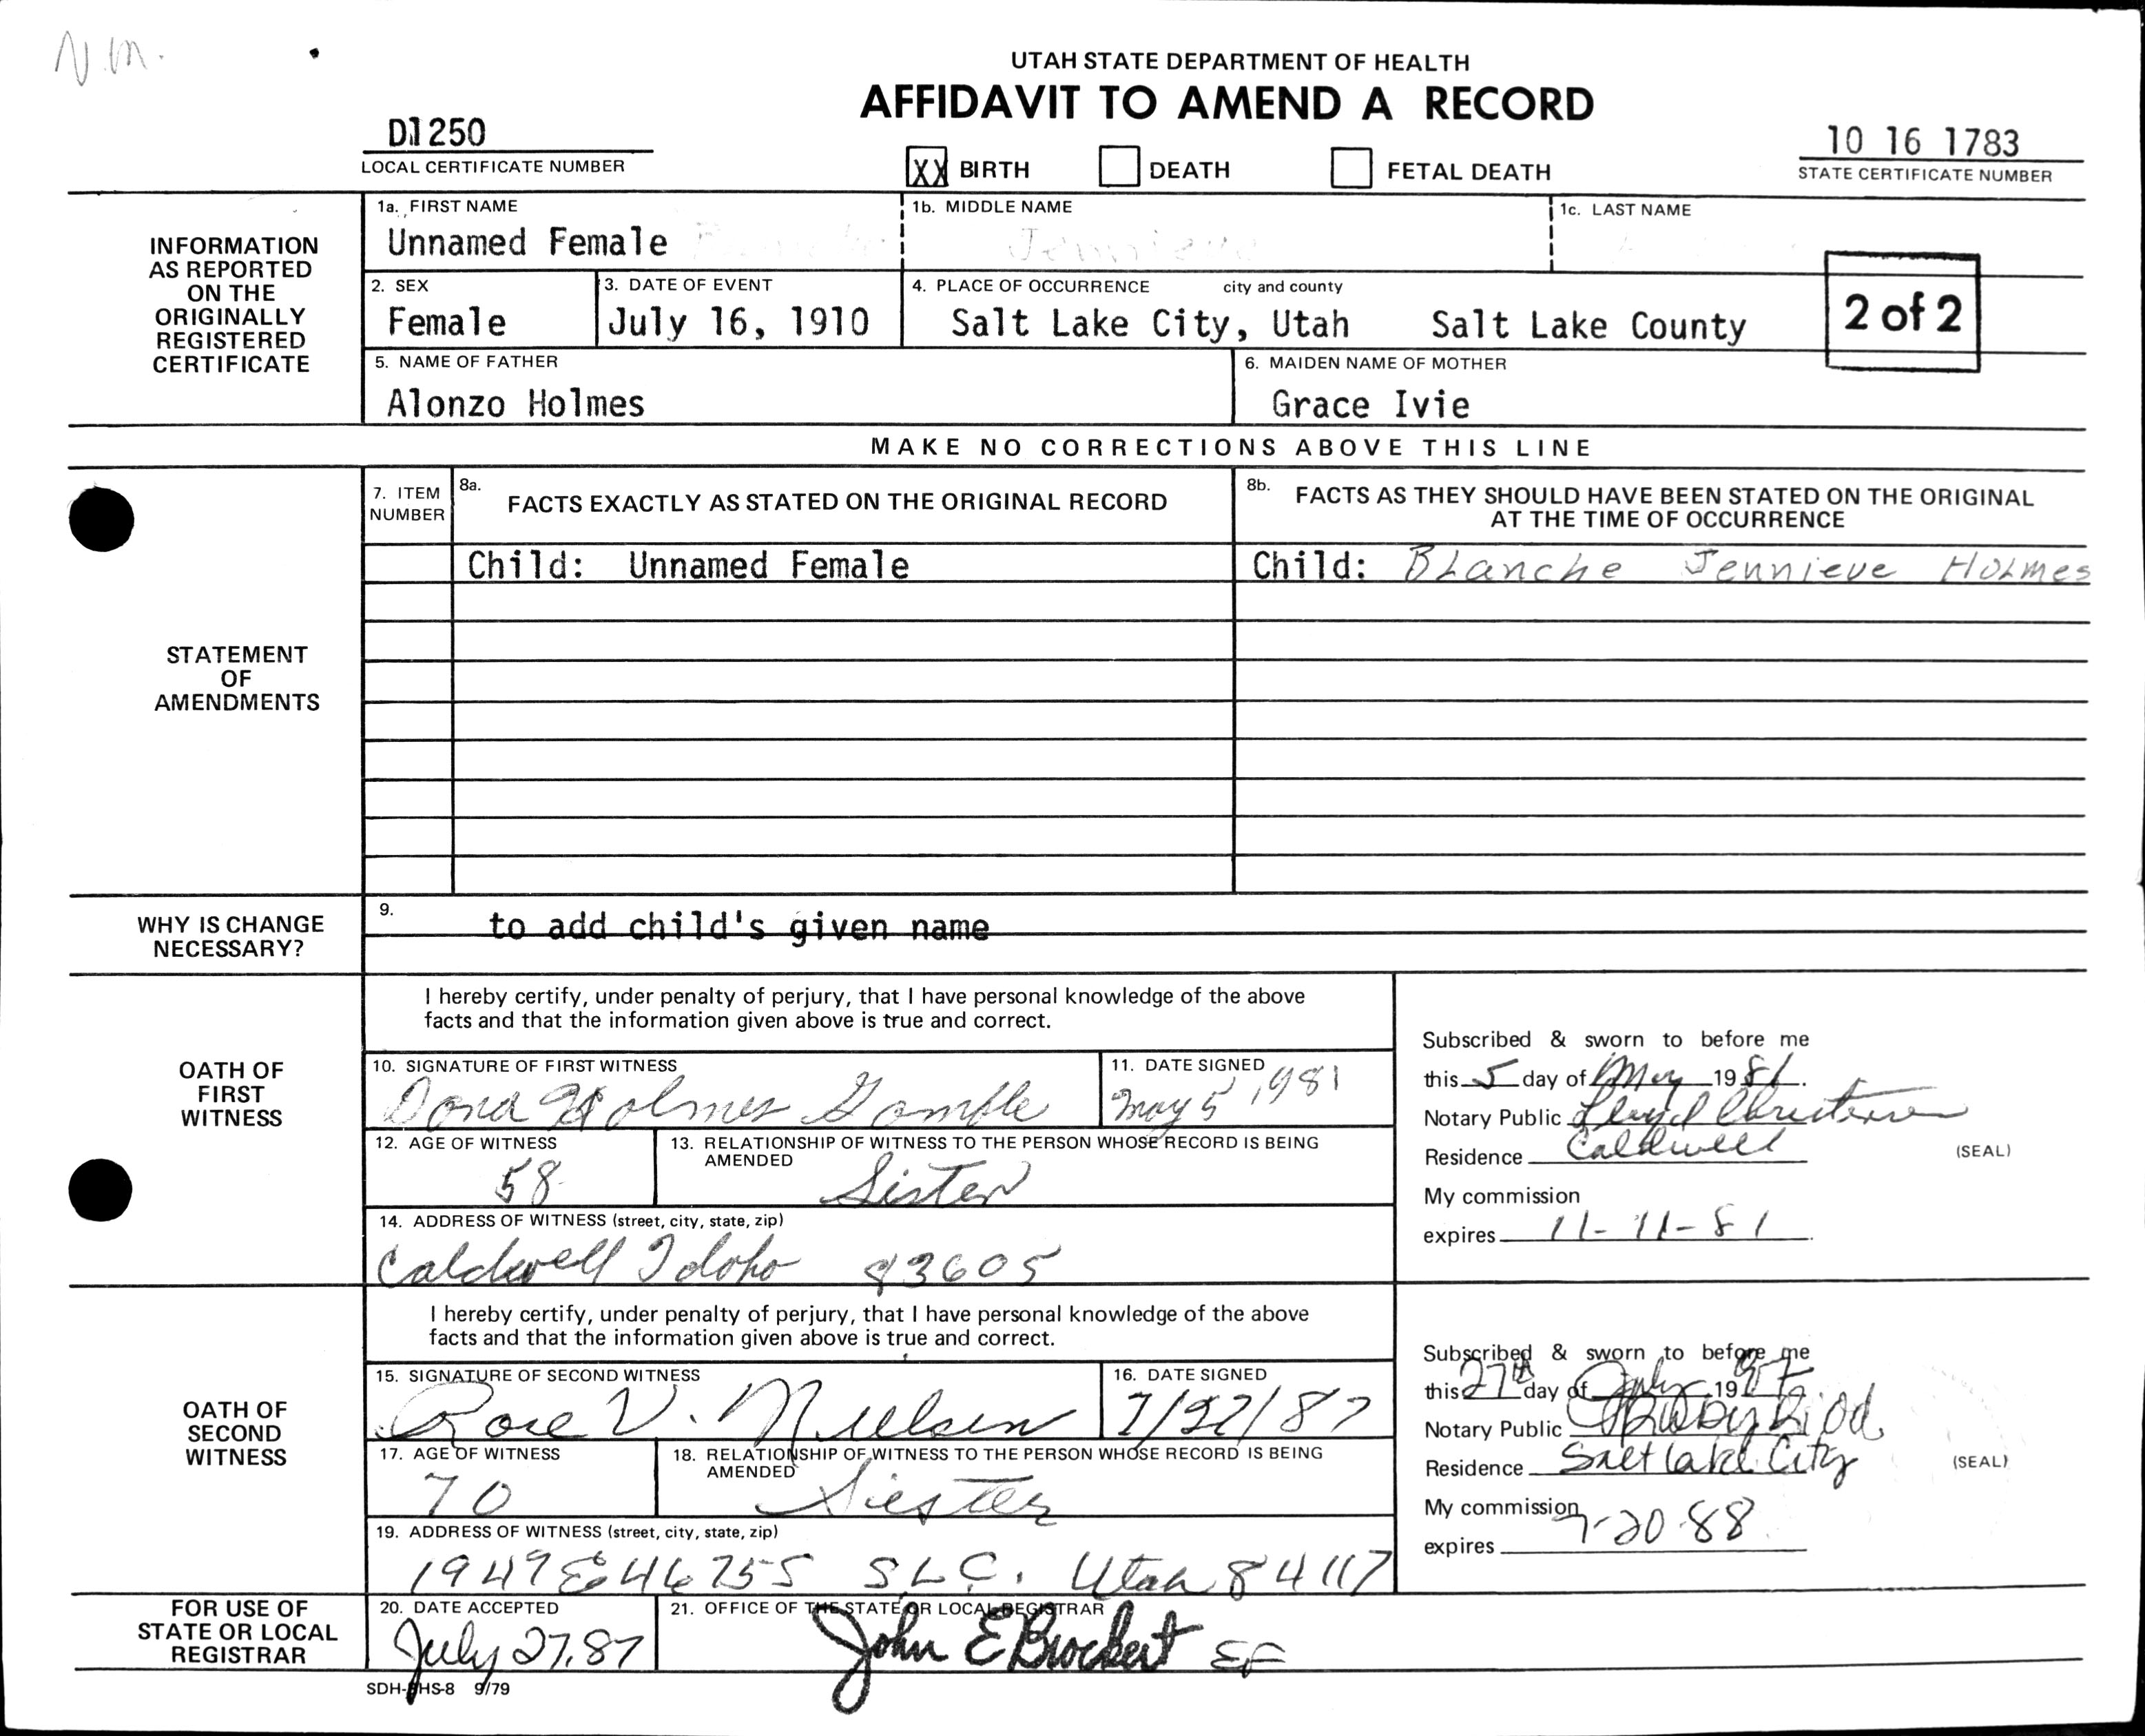 N.M.
UTAH STATE DEPARTMENT OF HEALTH
AFFIDAVIT TO AMEND A RECORD
D1250
LOCAL CERTIFICATE NUMBER
XX BIRTH DEATH FETAL DEATH
10 16 1783
STATE CERTIFICATE NUMBER
INFORMATION AS REPORTED ON THE ORIGINALLY REGISTERED CERTIFICATE
1a. FIRST NAME 1b. MIDDLE NAME 1c. LAST NAME
Unnamed Female Jennieve
2. SEX 3. DATE OF EVENT 4. PLACE OF OCCURRENCE city and county
Female July 16, 1910 Salt Lake City, Utah Salt Lake County
2 of 2
5. NAME OF FATHER 6. MAIDEN NAME OF MOTHER
Alonzo Holmes Grace Ivie
MAKE NO CORRECTIONS ABOVE THIS LINE
STATEMENT OF AMENDMENTS
7. ITEM NUMBER 8a. FACTS EXACTLY AS STATED ON THE ORIGINAL RECORD 8b. FACTS AS THEY SHOULD HAVE BEEN STATED ON THE ORIGINAL AT THE TIME OF OCCURRENCE
Child: Unnamed Female Child: Blanche Jennieve Holmes
WHY IS CHANGE NECESSARY?
9. to add child's given name
OATH OF FIRST WITNESS
I hereby certify, under penalty of perjury, that I have personal knowledge of the above
facts and that the information given above is true and correct.
10. SIGNATURE OF FIRST WITNESS 11. DATE SIGNED
Dona Holmes Gamble May 5 1981
12. AGE OF WITNESS 13. RELATIONSHIP OF WITNESS TO THE PERSON WHOSE RECORD IS BEING AMENDED
58 Sister
14. ADDRESS OF WITNESS (street, city, state, zip)
Caldwell Idaho 83605
Subscribed & sworn to before me
this 5 day of May 1981.
Notary Public Lloyd Christensen
Residence Caldwell
(SEAL)
My commission
expires 11-11-81
OATH OF SECOND WITNESS
I hereby certify, under penalty of perjury, that I have personal knowledge of the above
facts and that the information given above is true and correct.
15. SIGNATURE OF SECOND WITNESS 16. DATE SIGNED
Rose V. Nielsen 7/27/87
17. AGE OF WITNESS 18. RELATIONSHIP OF WITNESS TO THE PERSON WHOSE RECORD IS BEING AMENDED
70 Siester
19. ADDRESS OF WITNESS (street, city, state, zip)
1949 E 4675 S SLC. Utah 84117
Subscribed & sworn to before me
this 27th day of July 1987
Notary Public
Residence Salt Lake City
(SEAL)
My commission
expires 7-20-88
FOR USE OF STATE OR LOCAL REGISTRAR
20. DATE ACCEPTED 21. OFFICE OF THE STATE OR LOCAL REGISTRAR
July 27, 87 John E Brockert EF
SDH-BHS-8 9/79